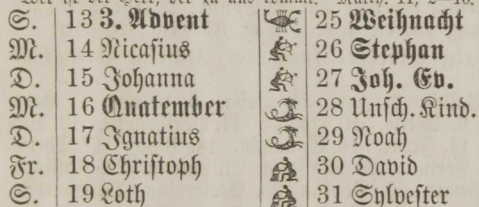 S. 13 3. Advent 25 Weihnacht
M. 14 Nicasius 26 Stephan
D. 15 Johanna 27 Joh. Ev.
M. 16 Quatember 28 Unsch. Kind.
D. 17 Ignatius 29 Noah
Fr. 18 Christoph 30 David
S. 19 Loth 31 Sylvester